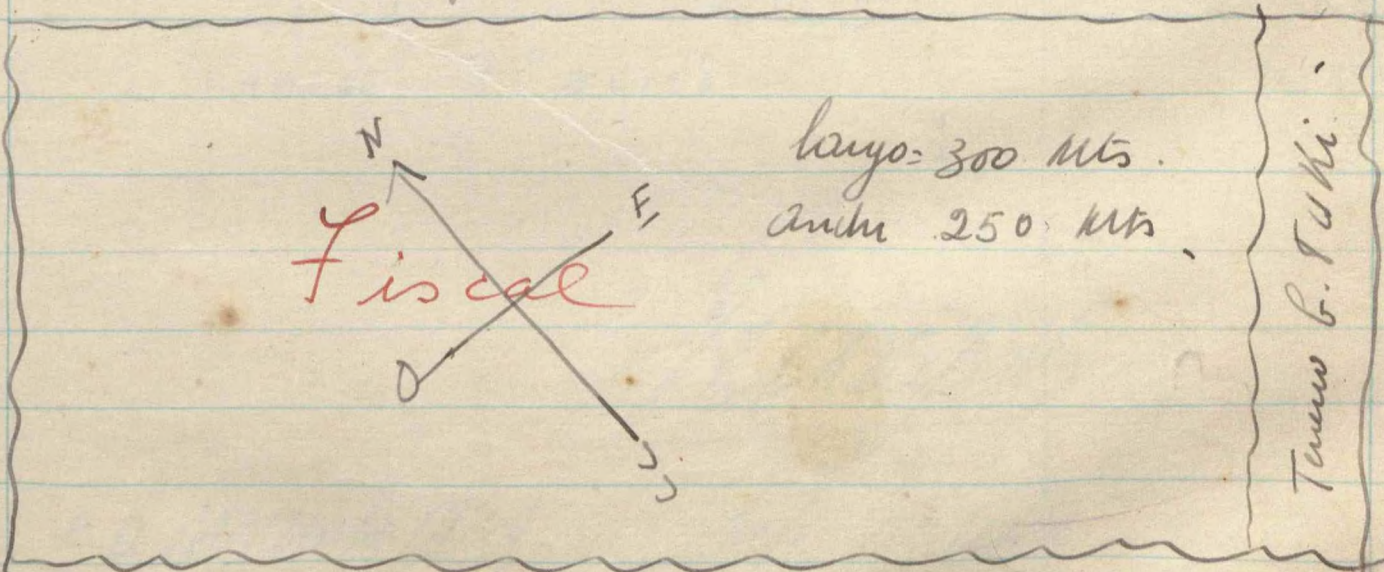 N
E
Fiscal
O
S
largo= 300 Mts.
ancho 250 Mts.
Terreno b. Tuki.